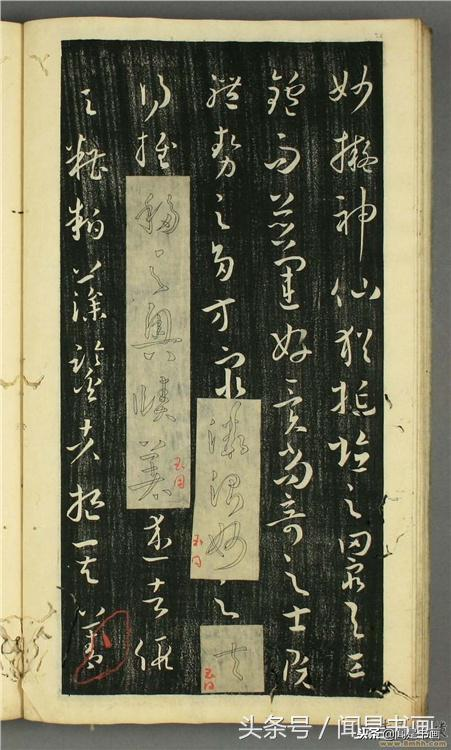 妙擬神仙猶埏埴之罔窮与工
鑪而並運好異尚奇之士翫
體勢之多方窮微測妙之夫
得推移之奧賾著述者假
其糟粕藻鑒者挹其菁
头条号 / 闻是书画